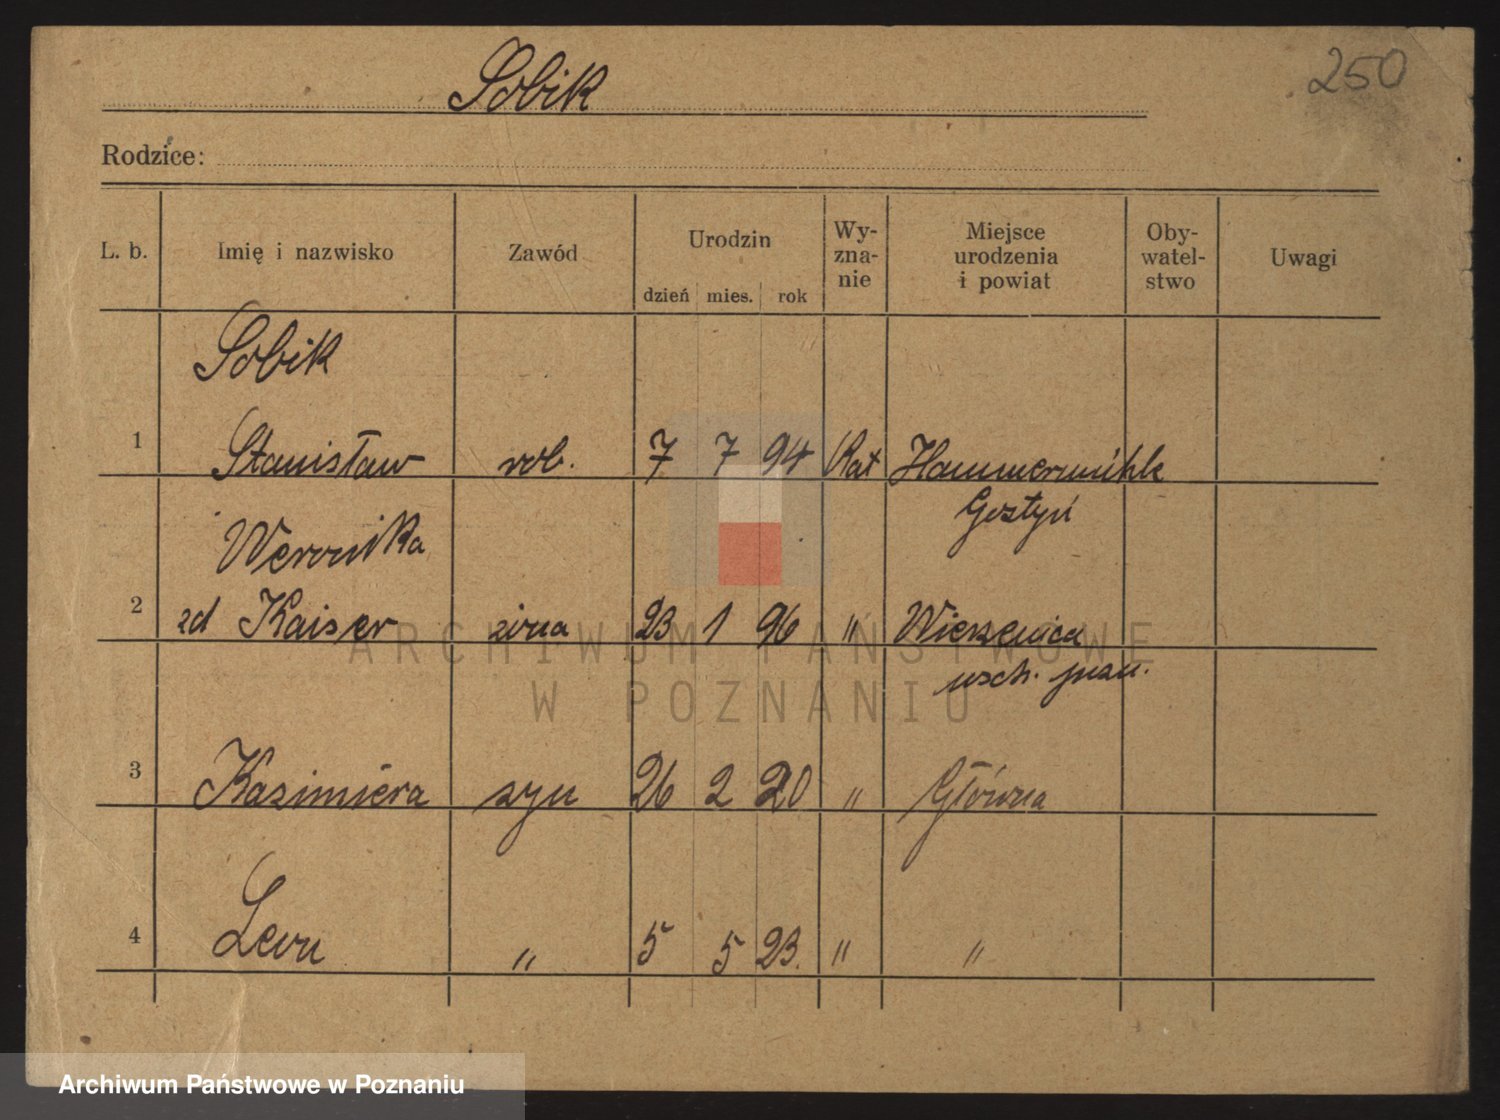 Sobik
250
Rodzice:
L. b. Imię i nazwisko Zawód Urodzin dzień mies. rok Wy- zna- nie Miejsce urodzenia i powiat Oby- watel- stwo Uwagi
Sobik
1 Stanisław rob. 7 7 94 Kat Hammermühle
Gostyń
Weronika
2 zd Kaiser żona 23 1 96 " Wierzenica
wsch. pozn.
3 Kazimiera syn 26 2 20 " Główna
4 Leon " 5 5 23. " "
ARCHIWUM PAŃSTWOWE
W POZNANIU
Archiwum Państwowe w Poznaniu